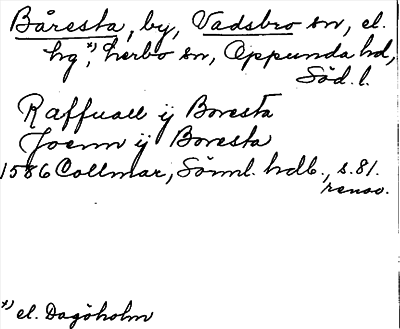 Båresta, by, Vadsbro sn, el.
hg *), Lerbo sn, Oppunda hd,
Söd. l.
Raffuall ij Boresta
Joenn ij Boresta
1586 Collmar, Sörml. hdb., s. 81.
renov.
*) el. Dagöholm